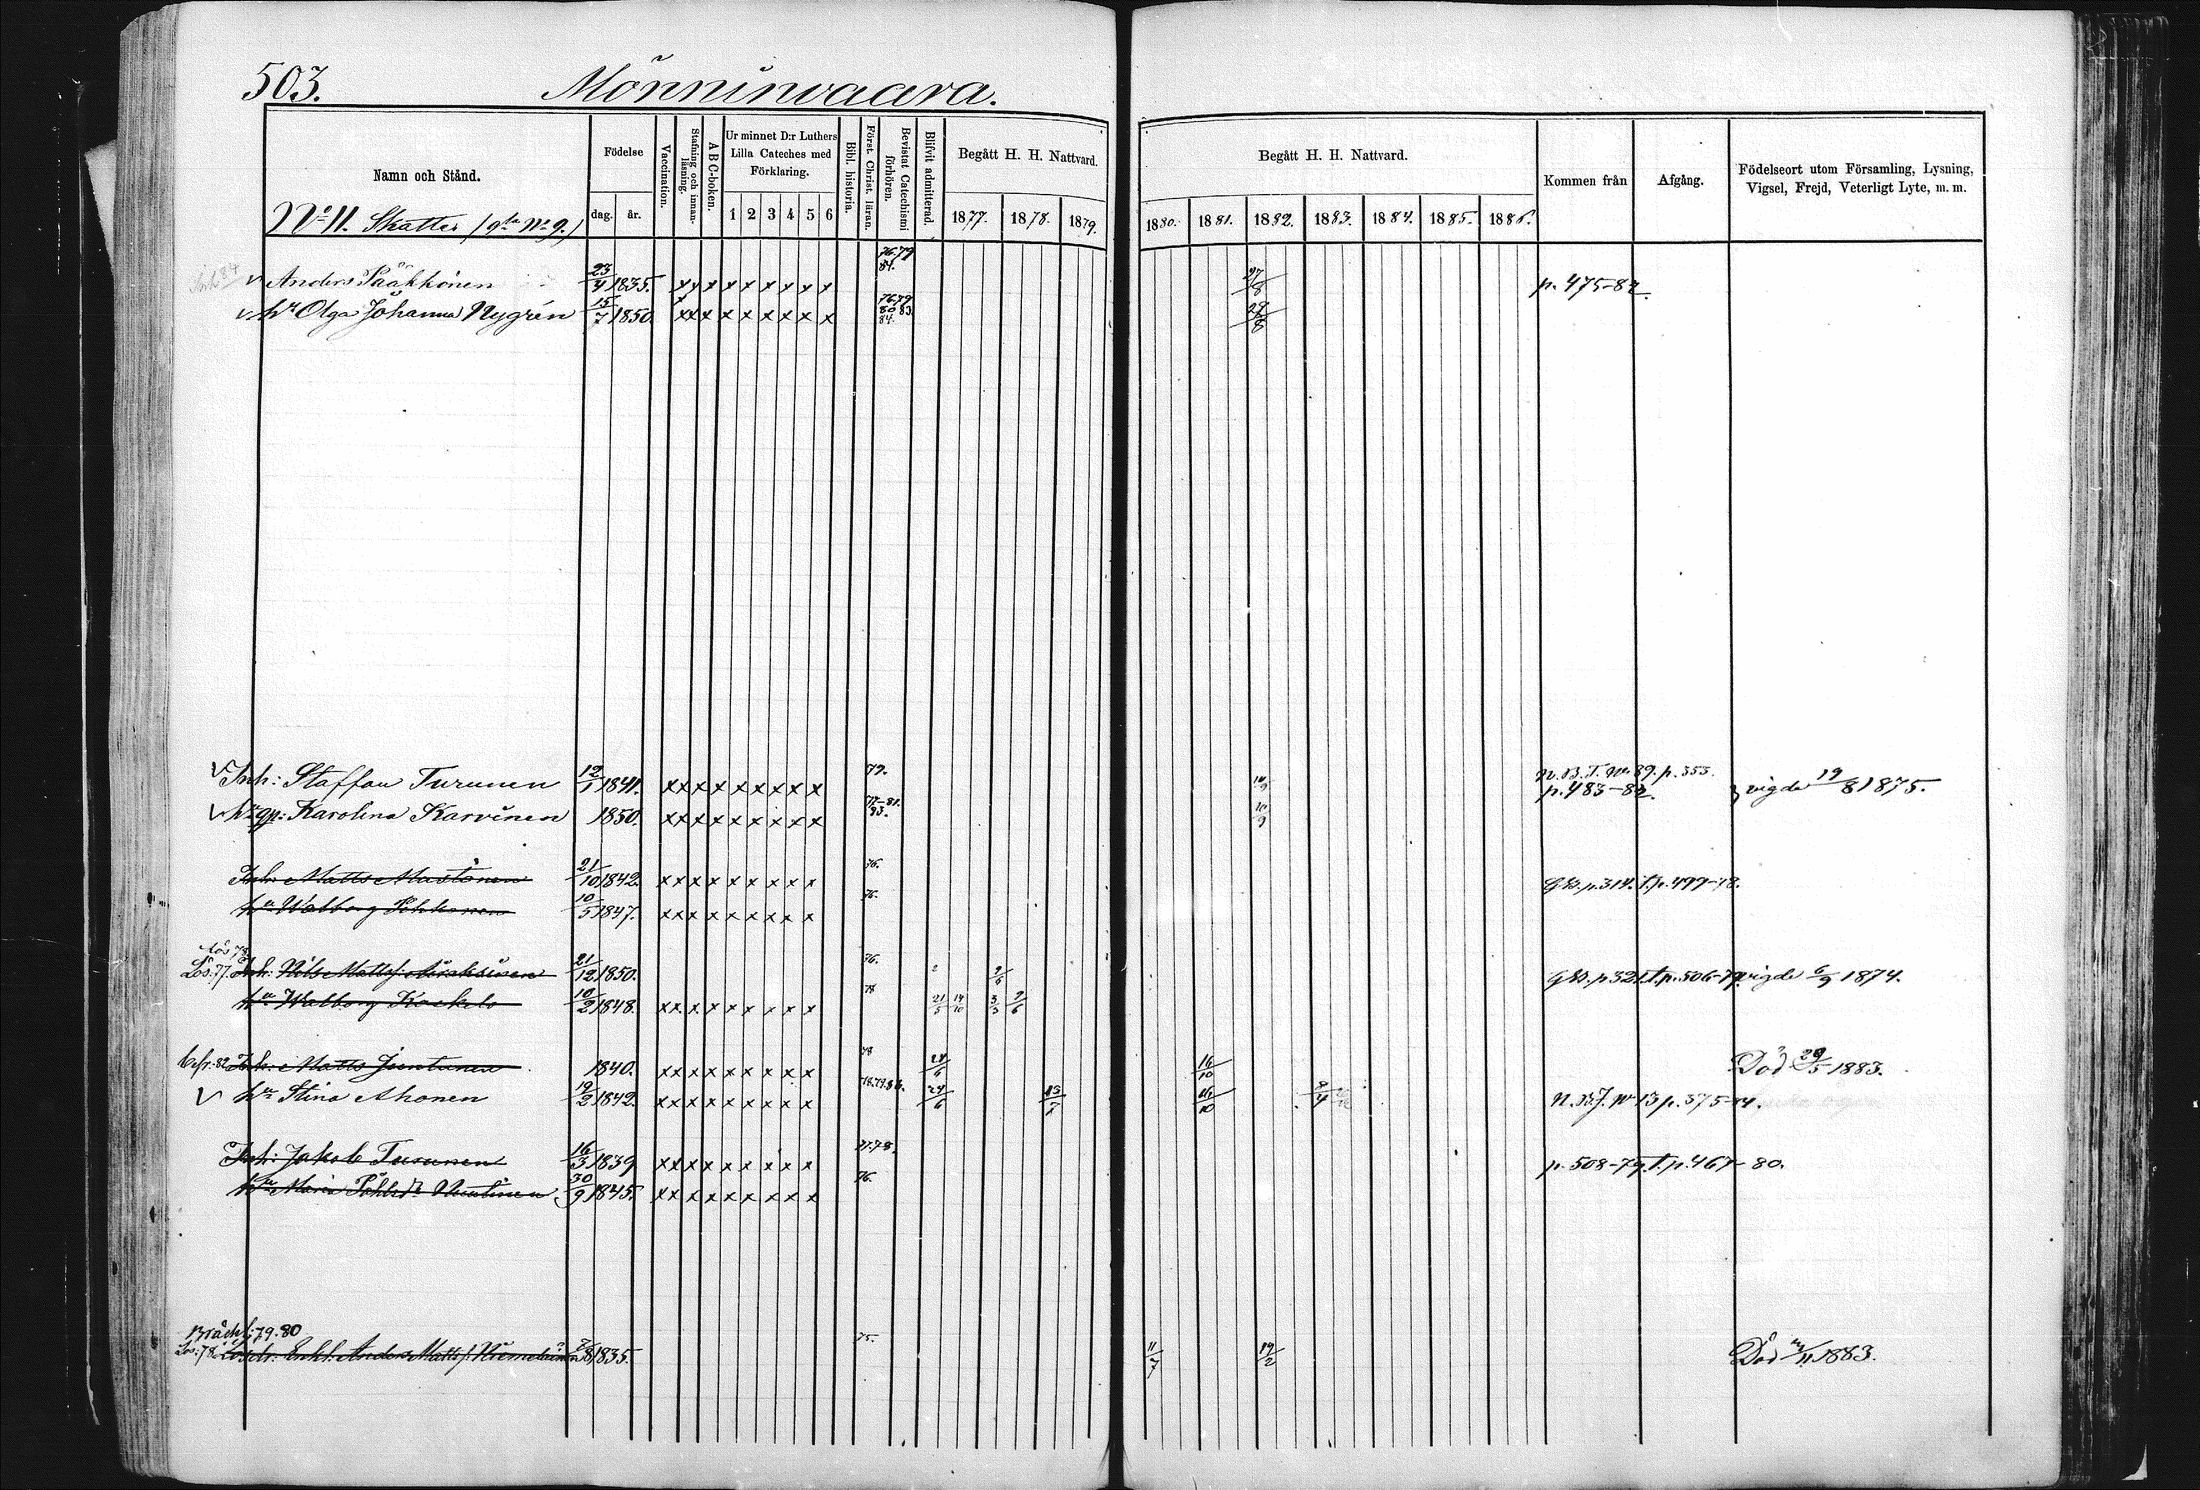 503. Mönninvaara.
Namn och Stånd. Födelse dag. år. Vaccination. Stafning och innanläsning. ABC-boken. Ur minnet D:r Luthers Lilla Cateches med Förklaring. 1 2 3 4 5 6 Bibl. historia. Först. Christ. läran. Bevistat Catechismi förhören. Blifvit admitterad. Begått H. H. Nattvard. 1877. 1878. 1879.
Begått H. H. Nattvard. 1880. 1881. 1882. 1883. 1884. 1885. 1886. Kommen från Afgång. Födelseort utom Församling, Lysning, Vigsel, Frejd, Veterligt Lyte, m. m.
No 11. Skatter (gla No 9.)
Anders Pääkkönen 23/4 1835. x x x x x x x x x 76.79 84. 27/8 p. 475-82.
hu Olga Johanna Nygrén 15/7 1850. x x x x x x x x x 76.79 80 83. 84. 28/8
Inh: Staffan Turunen 12/1 1841. x x x x x x x x x 79. 10/9 N.B.T. No 39. p. 353. p. 483-82. vigde 19/8 1875.
hu gg: Karolina Karvinen 1850. x x x x x x x x x 10/9
Inh: Matts Mustonen 21/10 1842. x x x x x x x x x 76. p. 314. T.p. 499-78.
hu Walborg 10/5 1847. x x x x x x x x x 76.
Lös. 77. Inh: Nils Mattsf. 21/12 1850. 76. p. 321. T.p. 506-79. vigde 6/9 1874.
hu Walborg Kackelo 10/2 1848. x x x x x x x x x 78 21/5 14/10 3/3 9/6
Inh: Matts Juntunen 1840. x x x x x x x x x 78 24/6 16/10 Död 29/5 1883.
hu Stina Ahonen 19/2 1842. x x x x x x x x x 24/6 13/7 16/10 8/4 No 13 p. 375
Inh: Jakob Turunen 16/3 1839 x x x x x x x x x 77.78. p. 508-79. T.p. 467-80.
hu Maria 30/9 1845. x x x x x x x x x 76.
79.80
Lös: 78. Enkl. Anders Mattsf. 7/8 1835. 75. 11/7 19/2 Död 11 1883.